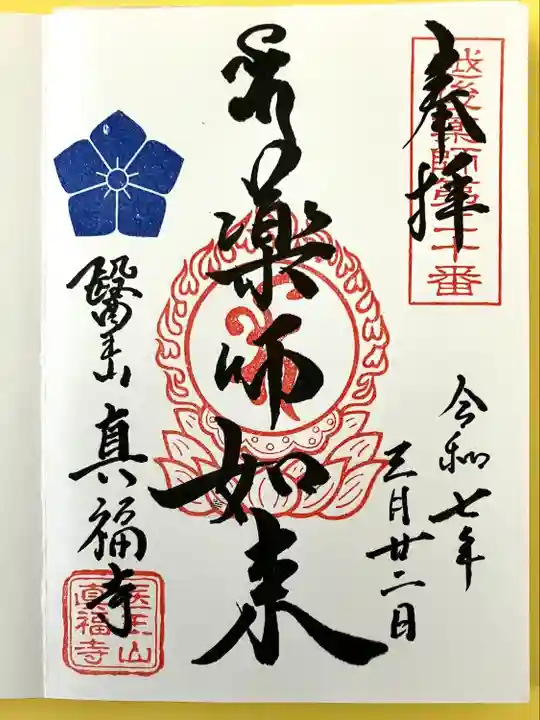 奉拝
越後薬師第二十番
令和七年
三月廿二日
薬師如来
醫王山
真福寺
医王山
真福寺